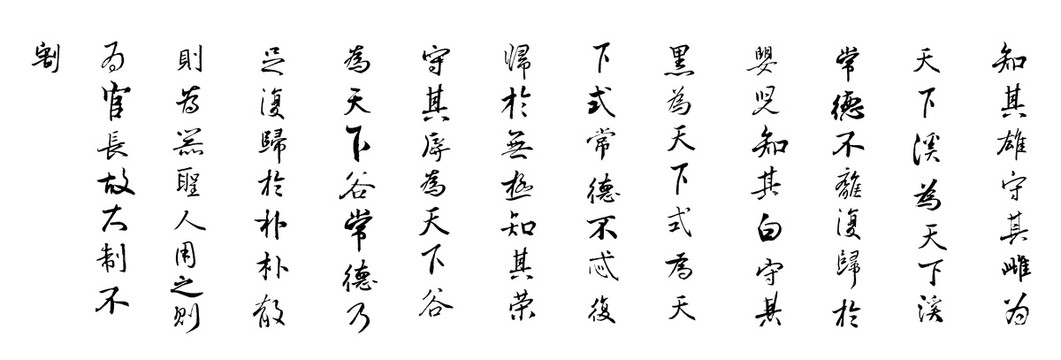 知其雄守其雌為
天下溪為天下溪
常德不離復歸於
嬰児知其白守其
黑為天下式為天
下式常德不忒復
歸於無極知其荣
守其辱為天下谷
為天下谷常德乃
足復歸於朴朴散
則為器聖人用之則
為官長故大制不
割